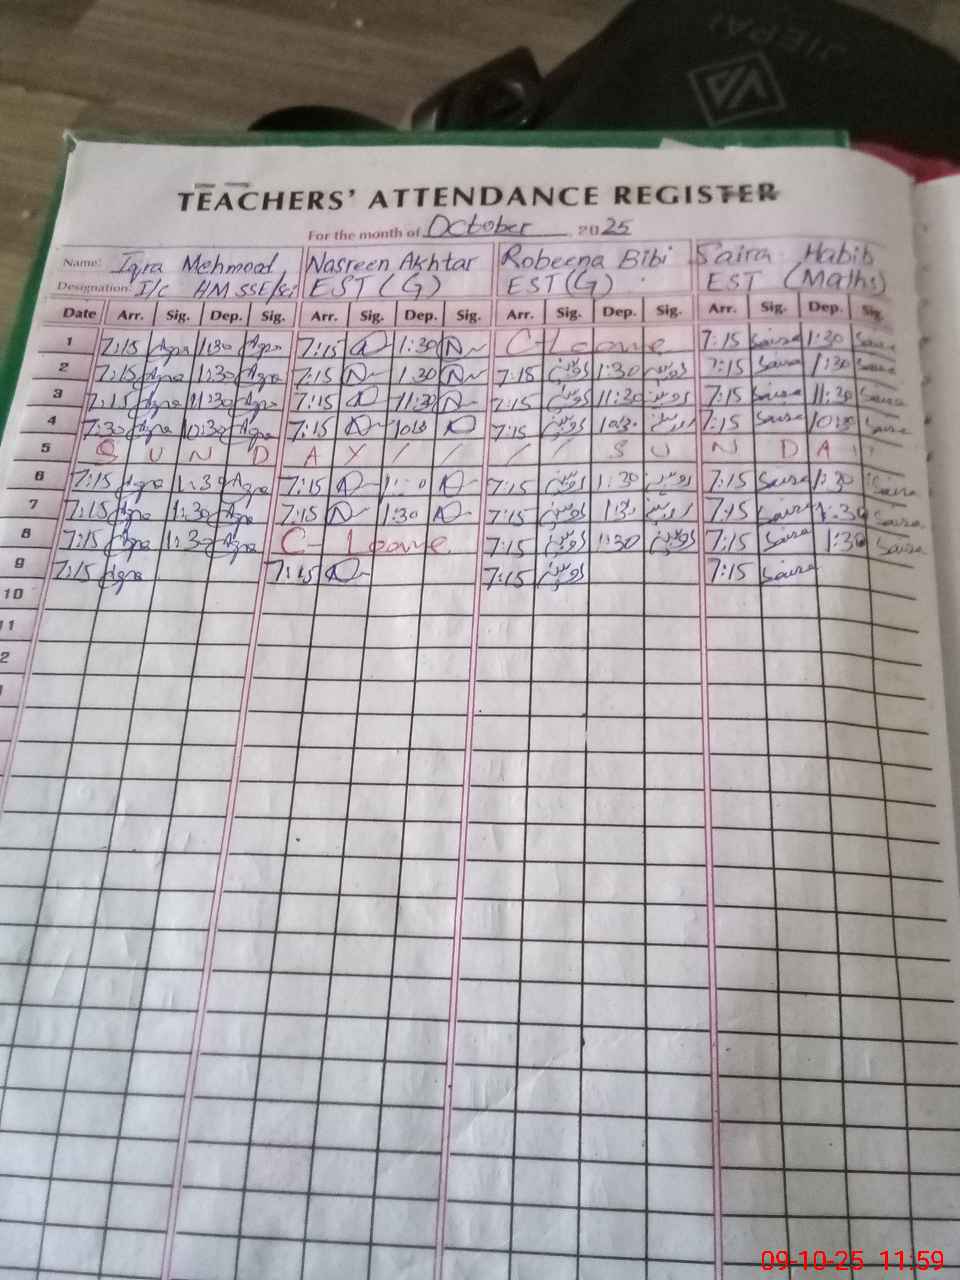 JIEPAI
TEACHERS' ATTENDANCE REGISTER
For the month of October 2025
Name: Iqra Mehmood Nasreen Akhtar Robeena Bibi Saira Habib
Designation: I/C HM SSE/Sci EST (G) EST (G) EST (Maths)
Date Arr. Sig. Dep. Sig. Arr. Sig. Dep. Sig. Arr. Sig. Dep. Sig. Arr. Sig. Dep. Sig.
1 7:15 Iqra 1:30 Iqra 7:15 1:30 C-Leave 7:15 Saira 1:30 Saira
2 7:15 Iqra 1:30 Iqra 7:15 1:30 7:15 1:30 7:15 Saira 1:30 Saira
3 7:15 Iqra 11:30 Iqra 7:15 11:30 7:15 11:30 7:15 Saira 11:30 Saira
4 7:30 Iqra 10:30 Iqra 7:15 7:15 7:15 Saira Saira
5 S U N D A Y / / / / S U N D A
6 7:15 Iqra 1:30 Iqra 7:15 7:15 1:30 7:15 Saira 1:30 Saira
7 7:15 Iqra 1:30 Iqra 7:15 1:30 7:15 1:30 7:15 Saira 1:30 Saira
8 7:15 Iqra 1:30 Iqra C-Leave 7:15 1:30 7:15 Saira 1:30 Saira
9 7:15 Iqra 7:15 7:15 7:15 Saira
10
11
2
09-10-25 11:59